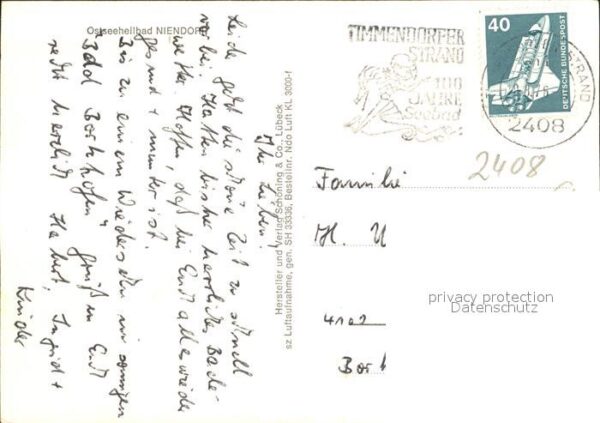 Ostseeheilbad NIENDORF
Ihr Lieben!
Leider geht die schöne Zeit zu schnell
vorbei. Hatten bisher herrliches Bade-
wetter. Hoffen, daß bei Euch allen wieder
gesund + munter ist.
Bis zu einem Wiedersehn im sonnigen
Bad grüßen Euch
recht herzlich Ingrid +
Kinder
Hersteller und Verlag Schöning & Co., Lübeck
sz Luftaufnahme, gen. SH 33336, Bestellnr. Ndo Luft KL 3000-f
TIMMENDORFER
STRAND
100
JAHRE
Seebad
40
DEUTSCHE BUNDESPOST
STRAND
2408
2408
Familie
H. U
Bork
privacy protection
Datenschutz